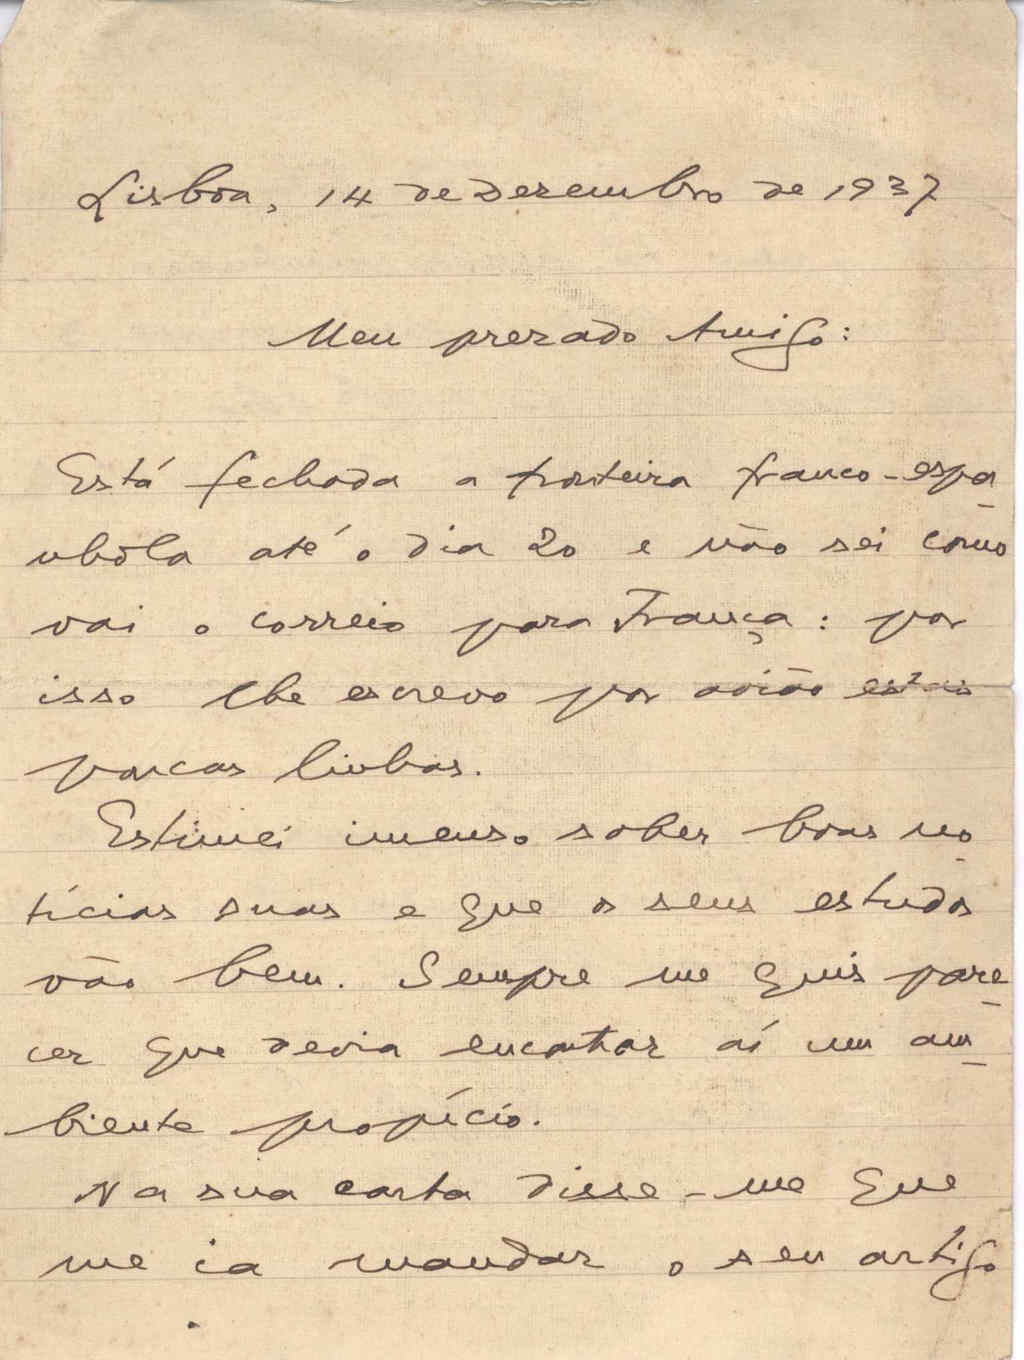 Lisboa, 14 de Dezembro de 1937
Meu prezado Amigo:
Está fechada a fronteira franco-espa-
nhola até o dia 20 e não sei como
vai o correio para França: por
isso lhe escrevo por avião estas
parcas linhas.
Estimei imenso saber boas no-
tícias suas e que os seus estudos
vão bem. Sempre me quis pare-
cer que devia encontrar aí um am-
biente propício.
Na sua carta disse-me que
me ia mandar o seu artigo